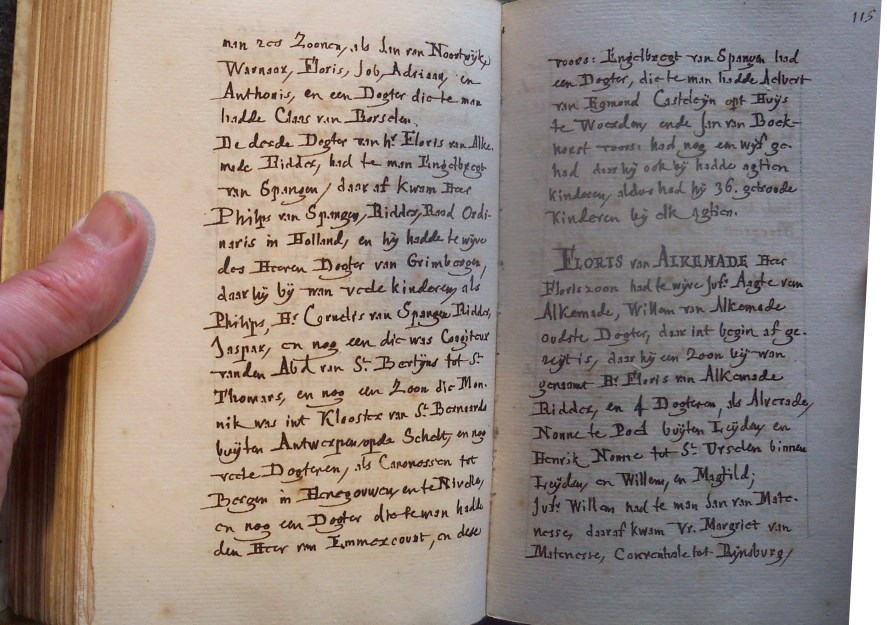 man zes Zoonen, als Jan van Noortwijk,
Warnaar, Floris, Job, Adriaan, en
Anthonis, en een Dogter die te man
hadde Claas van Borselen.
De derde Dogter van hr Floris van Alke-
made Ridder, had te man Engelbregt
van Spangen, daar af kwam Heer
Philips van Spangen, Ridder, Raad Ordi-
naris in Holland, en hy hadde te wijve
des Heeren Dogter van Grimbergen,
daar hij bij wan veele kinderen, als
Philips, Hr Cornelis van Spangen Ridder,
Jaspar, en nog een die was
vanden Abd van St Bertijns tot St
Thomars, en nog een Zoon die Mon-
nik was int Klooster van St Bernards
buijten Antwerpen op de Schelt, en nog
veele Dogteren, als Canonessen tot
Bergen in Henegouwen, en te Nivelle,
en nog een Dogter die te man hadde
den Heer van Emmercourt, en dese
115
voors: Engelbregt van Spangen had
een Dogter, die te man hadde Aelbert
van Egmond Casteleijn opt Huijs
te Woerden, ende Jan van Boek-
horst voors: had nog een wijf ge-
had daar hij ook bij hadde agtien
kinderen, aldus had hij 36. getroude
kinderen bij elk agtien.
FLORIS van ALKEMADE Heer
Floris zoon had te wijve Jufr Aagte van
Alkemade, Willem van Alkemade
oudste Dogter, daar int begin af ge-
zeijt is, daar hij een Zoon bij wan
genaamt Hr Floris van Alkemade
Ridder, en 4 Dogteren, als Alverade,
Nonne te Poel buijten Leijden, en
Henrik Nonne tot St Urselen binnen
Leijden, en Willem, en Magtild;
Jufr Willem had te man Jan van Mate-
nesse, daar af kwam Vr. Margriet van
Matenesse, Conventuale tot Rijnsburg,